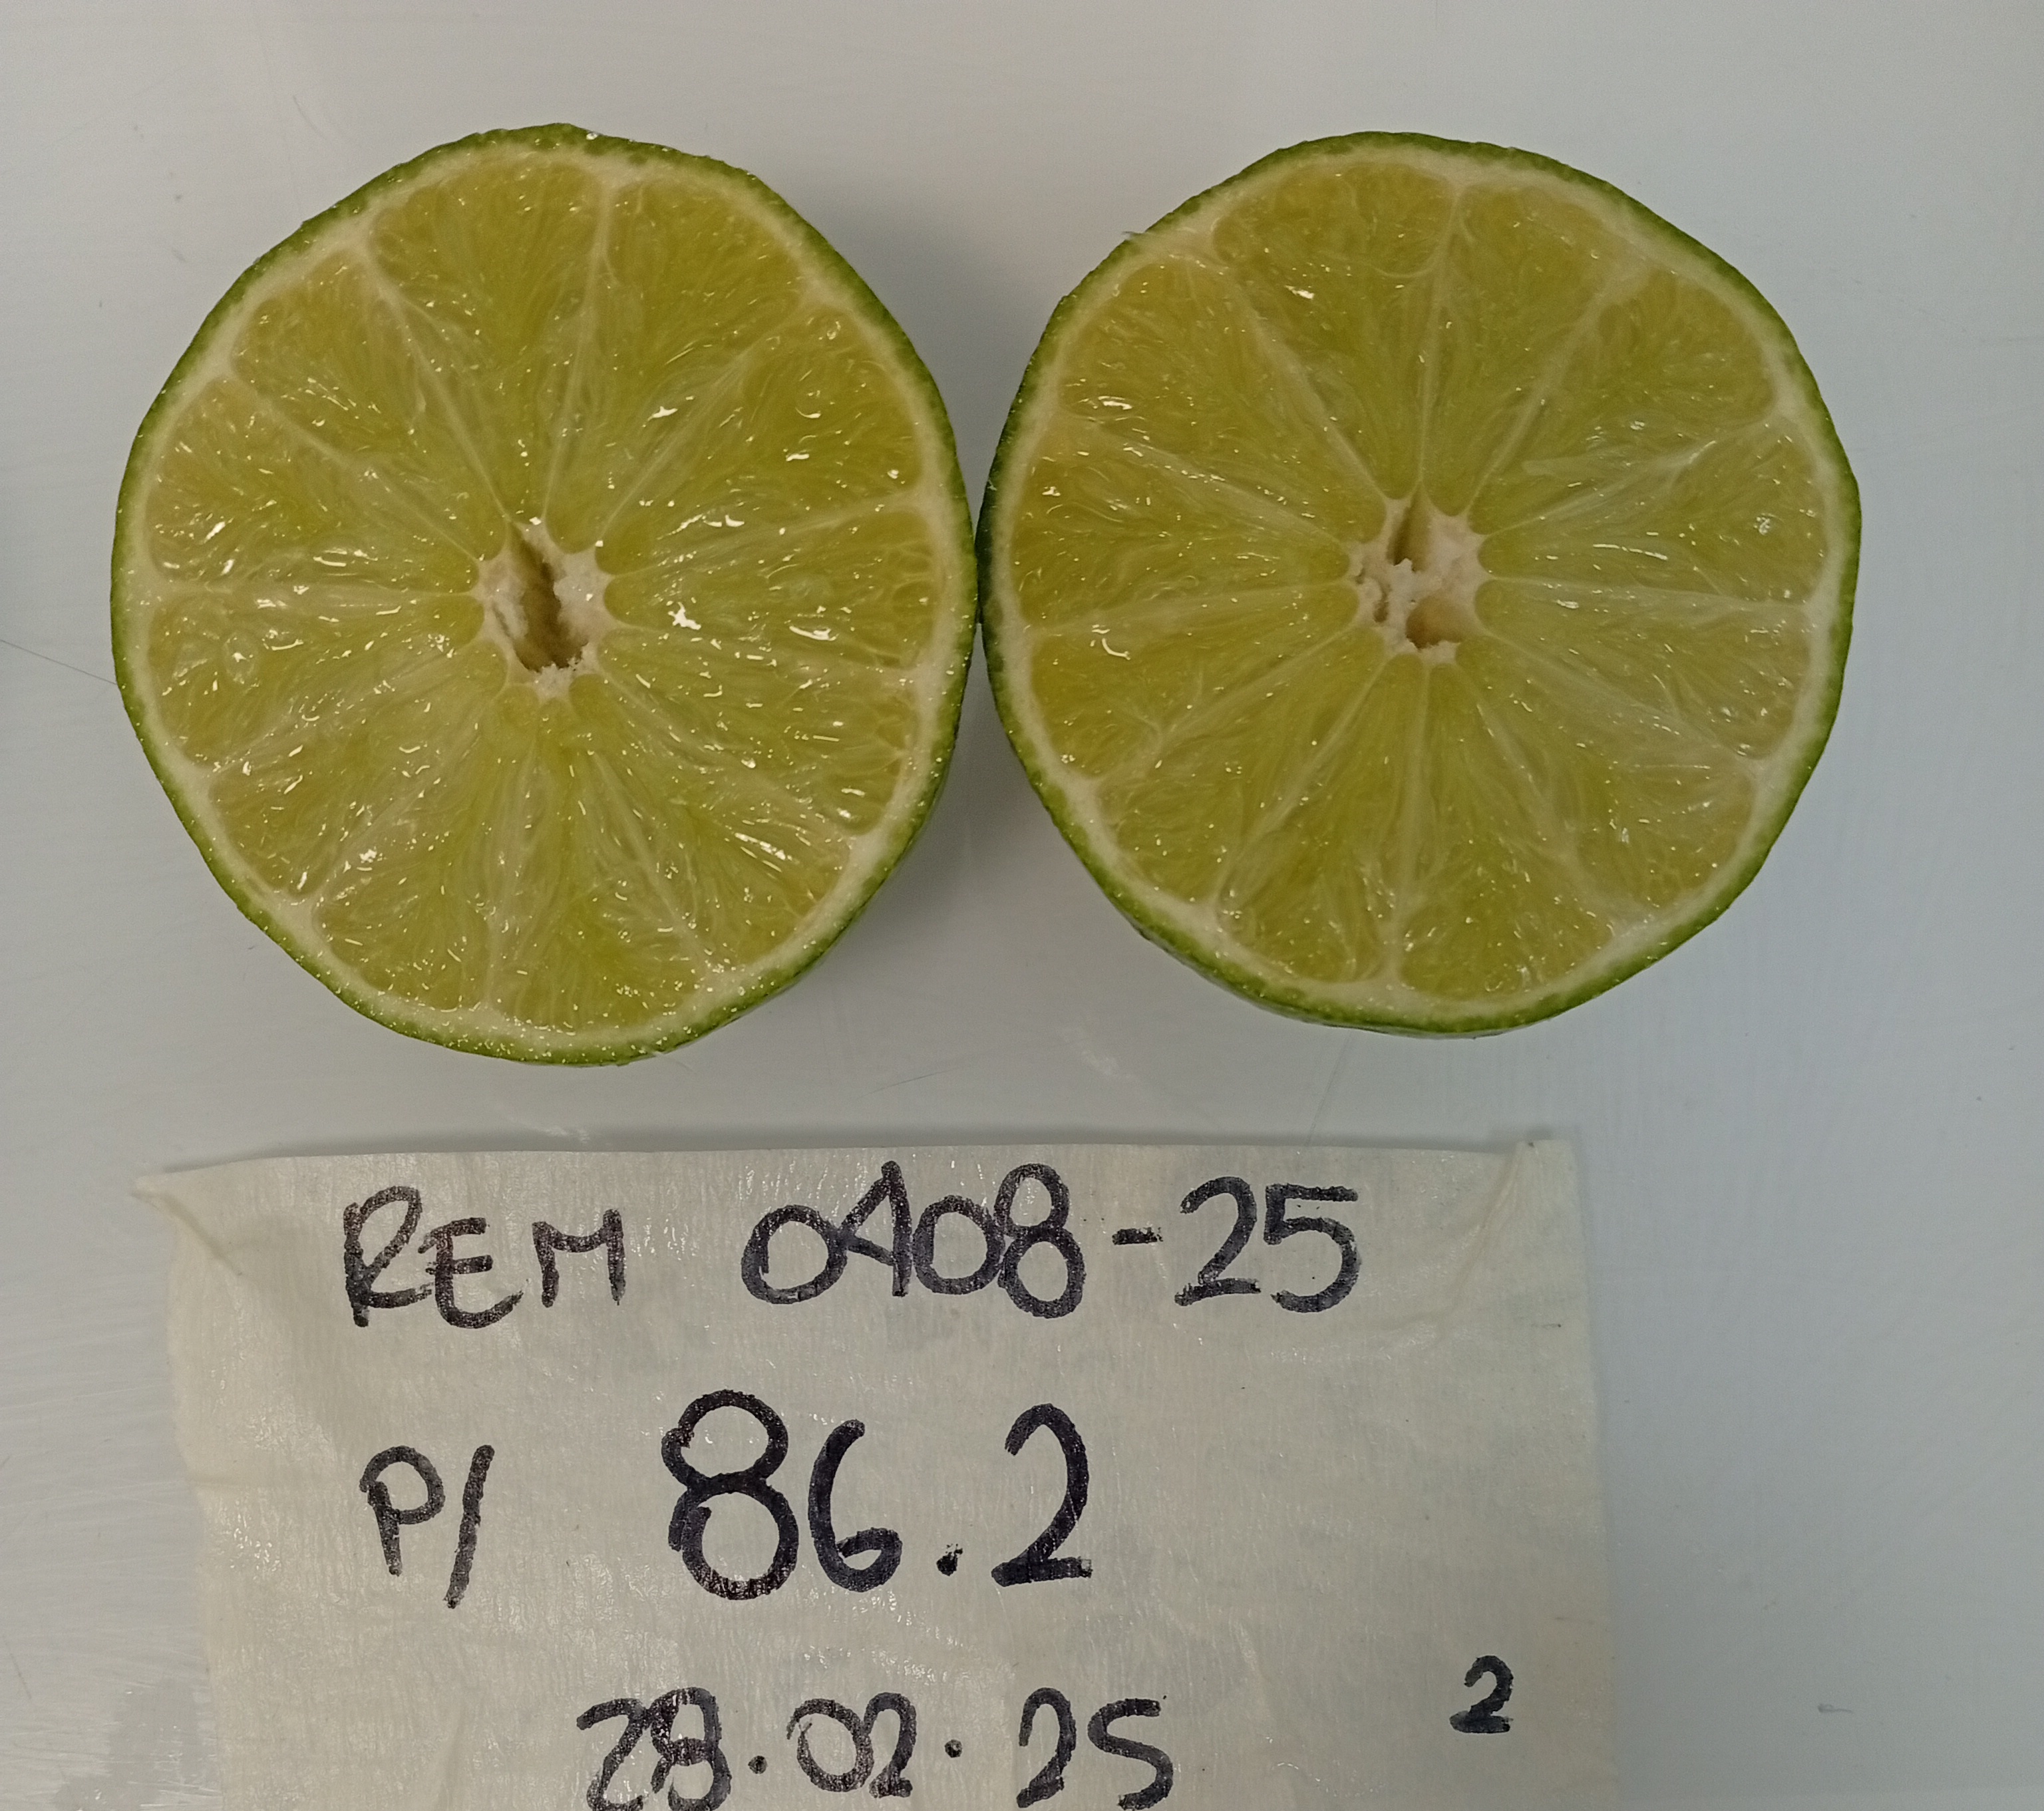 REM 0408-25
P/ 86.2
28.02.25 2